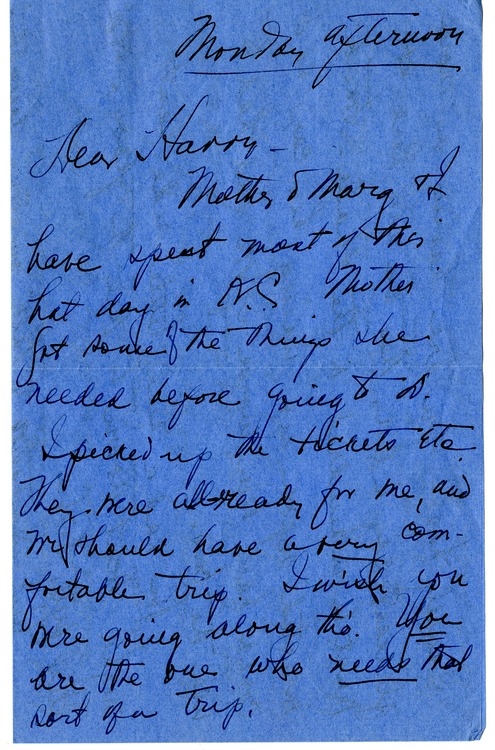 Monday afternoon
Dear Harry -
Mother & Marg & I
have spent most of this
hot day in K.C. Mother
got some of the things she
needed before going to D.
I picked up the tickets etc.
They were all ready for me, and
we should have a very com-
fortable trip. I wish you
were going along tho. You
are the one who needs that
sort of a trip.